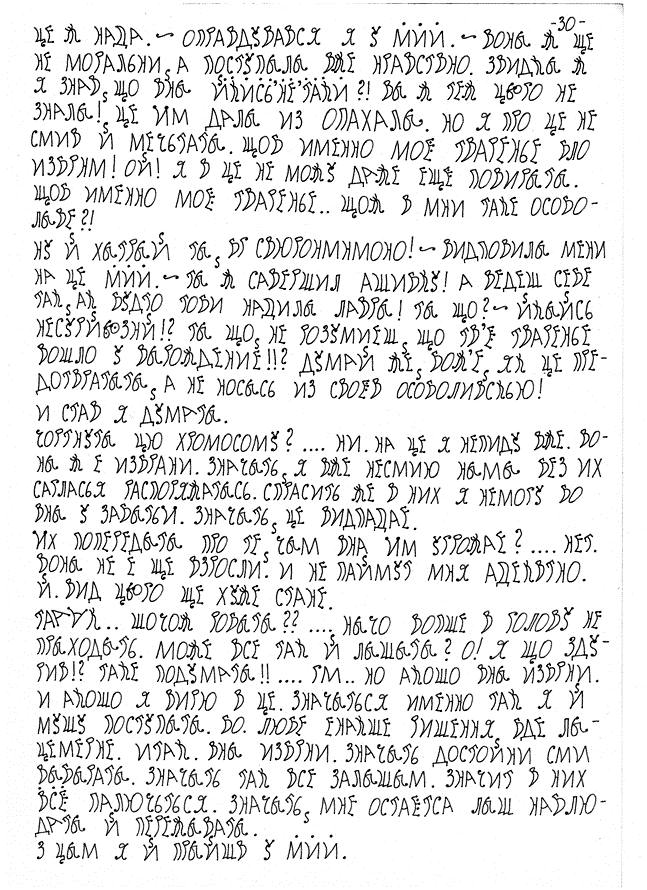 -30-
ЦЕ Ж НАДА. ~ ОПРАВДУВАВСЯ Я У МИЙ. ~ ВОНА Ж ЩЕ
НЕ МОРАЛЬНИ, А ПОСТУПАЛА ВЖЕ НРАВСТВНО. ЗВИДКА Ж
Я ЗНАВ, ЩО ВНА ЙКИСЬ НЕ ТАКИ?! ВА Ж ТЕЖ ЦЬОГО НЕ
ЗНАЛА!, ЦЕ ИМ ДАЛА ИЗ ОПАХАЛА. НО Я ПРО ЦЕ НЕ
СМИВ Й МЕЧЬТАТА. ЩОБ ИМЕННО МОЕ ТВАРЕНЬЕ БЛО
ИЗБРНИМ! ОЙ! Я В ЦЕ НЕ МОЖУ ДРЖЕ ЕЩЕ ПОВИРАТА.
ЩОБ ИМЕННО МОЕ ТВАРЕНЬЕ.. ЩОЖ В МНИ ТАКЕ ОСОБО-
ЛАВЕ?!
НУ Й ХАТРАЙ ТА, БГ СВЮРОНМНМОНО! ~ ВИДПОВИЛА МЕНИ
НА ЦЕ МИЙ. ~ ТА Ж САВЕРШИЛ АШИБКУ! А ВЕДЕШ СЕБЕ
ТАК, АК БУДТО ТОБИ НАЦИЛА ЛАВРА! ТА ЩО? ~ ЙКАЙСЬ
НЕСУРЙОЗНЙ!? ТА ЩО, НЕ РОЗУМИЕШ, ЩО ТВ'Е ТВАРЕНЬЕ
ВОШЛО У ВАРОЖДЕНИЕ!!? ДУМАЙ ЖЕ, БОЖ'Е, ЯК ЦЕ ПРЕ-
ДОТВРАТАТА, А НЕ НОСАСЬ ИЗ СВОЕВ ОСОБОЛИВСКЬЮ!
И СТАВ Я ДУМАТА.
ЧОРТНУТА ЦЮ ХРОМОСОМУ? .... НИ. НА ЦЕ Я НЕПИДУ ВЖЕ. ВО-
НА Ж Е ИЗБРАНИ. ЗНАЧАТЬ, Я ВЖЕ НЕСМИЮ НАМА БЕЗ ИХ
САГЛАСЬЯ РАСПОРЯЖАТАСЬ. СПРАСИТЬ ЖЕ В НИХ Я НЕМОГУ БО
ВНА У ЗАВАТЬИ. ЗНАЧАТЬ, ЦЕ ВИДПАДАЕ.
ИХ ПОПЕРЕДАТА ПРО ТЕ, ЧАМ ВНА ИМ УГРОЖАЕ? .... НЕТ.
ВОНА НЕ Е ЩЕ ВЗРОСЛИ. И НЕ ПАЙМУТ МНЯ АДЕКВТНО.
Й. ВИД ЦЬОГО ЩЕ ХУЖЕ СТАНЕ.
ТАРАК.. ШОЧОЖ РОБАТА?? ...., НАЧО ВОПШЕ В ГОЛОВУ НЕ
ПРАХОДАТЬ. МОЖЕ ВСЕ ТАК Й ЛАШАТА? О! Я ЩО ЗДУ-
РИВ!? ТАКЕ ПОДУМАТА!! .... ГМ.. НО АКОШО ВНА ИЗБРНИ.
И АКОШО Я ВИРЮ В ЦЕ. ЗНАЧАТЬСЯ ИМЕННО ТАК Я Й
МУШУ ПОСТУПАТА. БО. ЛЮБЕ ЕНАКШЕ РИШЕННЯ, БДЕ ЛА-
ЦЕМЕРНЕ. ИТАК. ВНА ИЗБРНИ. ЗНАЧАТЬ ДОСТОЙНИ СМИ
ВАБАРАТА. ЗНАЧАТЬ ТАК ВСЕ ЗАЛАШАМ. ЗНАЧИТ В НИХ
ВСЁ ПАЛЮЧЬТЬСЯ. ЗНАЧАТЬ, МНЕ ОСТАЕТСА ЛАШ НАБЛЮ-
ДАТА Й ПЕРЕЖАВАТА.
З ЦАМ Я Й ПРАЙШВ У МИЙ.